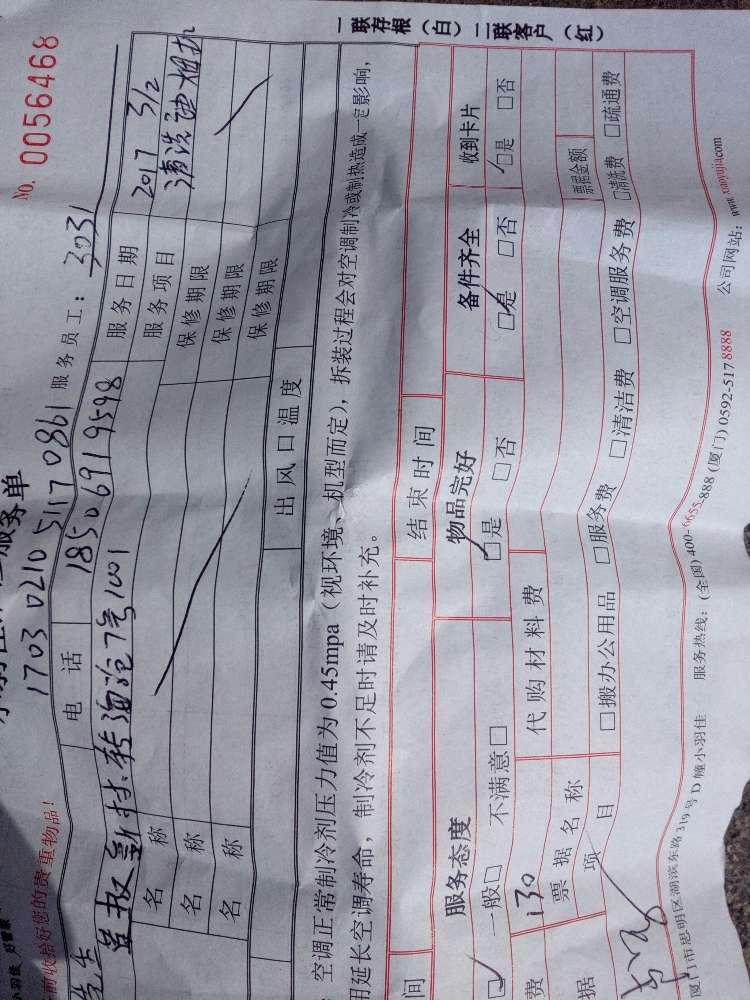 No. 0056468
服务单
1703 0210 5117 0861 服务员工：3031
前收拾好您的贵重物品！
电话 18506919598 服务日期 2017 3/2
7号1001 服务项目 清洗油烟机
名称 保修期限
名称 保修期限
名称 保修期限
出风口温度
空调正常制冷剂压力值为0.45mpa（视环境、机型而定），拆装过程会对空调制冷或制热造成一定影响，
用延长空调寿命，制冷剂不足时请及时补充。
间 结束时间
服务态度 物品完好 备件齐全 收到卡片
一般□ 不满意□ □是 □否 □是 □否 □是 □否
费 130 代购材料费
据 票据名称 票据金额
项目 □搬办公用品 □服务费 □清洁费 □空调服务费 □清洗费 □疏通费
厦门市思明区湖滨东路319号D幢小羽佳 服务热线：(全国) 400-6655-888 (厦门) 0592-517 8888 公司网站：www.xiaoyujia.com
一联存根（白）二联客户（红）